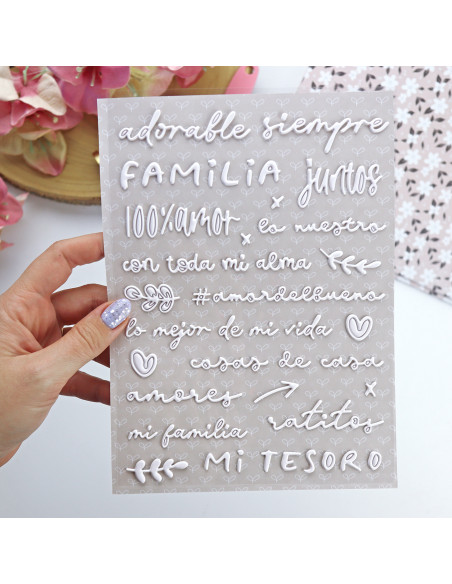 adorable siempre
FAMiLiA juntos
100%amor lo nuestro
con toda mi alma
#amordelbueno
lo mejor de mi vida
cosas de casa
amores
ratitos
mi familia
Mi TESORO